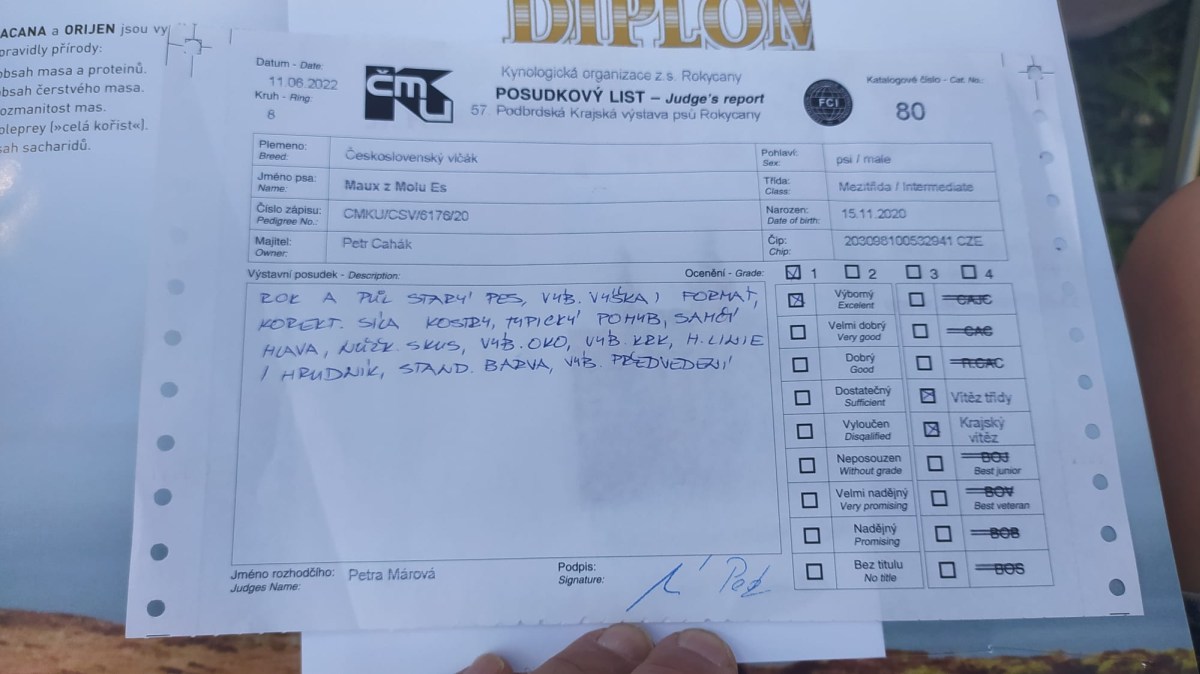 ACANA a ORIJEN jsou vy
pravidly přírody:
obsah masa a proteinů.
obsah čerstvého masa.
ozmanitost mas.
oleprey (»celá kořist«).
sah sacharidů.
DIPLOM
Datum - Date:
11.06.2022
Kruh - Ring:
8
ČMKU
Kynologická organizace z.s. Rokycany
POSUDKOVÝ LIST – Judge's report
57. Podbrdská Krajská výstava psů Rokycany
FCI
Katalogové číslo - Cat. No.:
80
Plemeno: Československý vlčák Pohlaví: psi / male
Breed: Sex:
Jméno psa: Maux z Molu Es Třída: Mezitřída / Intermediate
Name: Class:
Číslo zápisu: CMKU/CSV/6176/20 Narozen: 15.11.2020
Pedigree No.: Date of birth:
Majitel: Petr Cahák Čip: 203098100532941 CZE
Owner: Chip:
Výstavní posudek - Description: Ocenění - Grade: 1 2 3 4
ROK A PŮL STARÝ PES, VÝB. VÝŠKA I FORMÁT,
KOREKT. SÍLA KOSTRY, TYPICKÝ POHYB, SAMČÍ
HLAVA, NŮŽK. SKUS, VÝB. OKO, VÝB. KRK, H. LINIE
I HRUDNÍK, STAND. BARVA, VÝB. PŘEDVEDENÍ
Výborný CAJC
Excelent
Velmi dobrý CAC
Very good
Dobrý R.CAC
Good
Dostatečný Vítěz třídy
Sufficient
Vyloučen Krajský
Disqalified vítěz
Neposouzen BOJ
Without grade Best junior
Velmi nadějný BOV
Very promising Best veteran
Nadějný BOB
Promising
Bez titulu BOS
No title
Jméno rozhodčího: Petra Márová
Judges Name:
Podpis:
Signature: